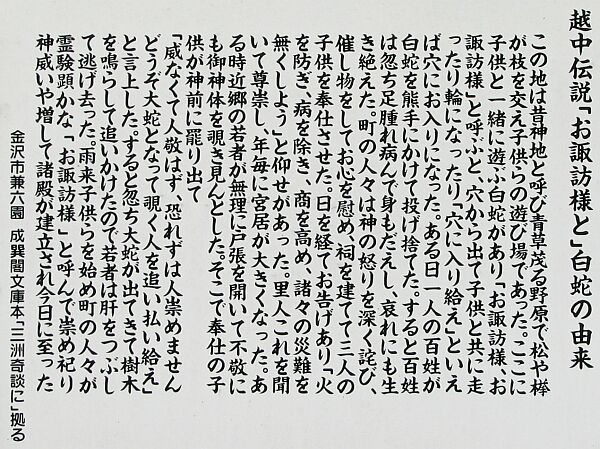 越中伝説「お諏訪様と」白蛇の由来
この地は昔神地と呼び青草茂る野原で松や欅
が枝を交え子供らの遊び場であった。ここに
子供と一緒に遊ぶ白蛇があり「お諏訪様、お
諏訪様」と呼ぶと、穴から出て子供と共に走
ったり輪になったり「穴に入り給え」といえ
ば穴にお入りになった。ある日一人の百姓が
白蛇を熊手にかけて投げ捨てた。すると百姓
は忽ち足腫れ病んで身もだえし、哀れにも生
き絶えた。町の人々は神の怒りを深く詫び、
催し物をしてお心を慰め、祠を建てて三人の
子供を奉仕させた。日を経てお告げあり「火
を防ぎ、病を除き、商を高め、諸々の災難を
無くしよう」と仰せがあった。里人これを聞
いて尊崇し、年毎に宮居が大きくなった。あ
る時近郷の若者が無理に戸張を開いて不敬に
も御神体を覗き見んとした。そこで奉仕の子
供が神前に罷り出て
「威なくて人敬はず、恐れずは人崇めません
どうぞ大蛇となって覗く人を追い払い給え」
と言上した。すると忽ち大蛇が出てきて樹木
を鳴らして追いかけたので若者は肝をつぶし
て逃げ去った。雨来子供らを始め町の人々が
霊験顕かな「お諏訪様」と呼んで崇め祀り
神威いや増して諸殿が建立され今日に至った
金沢市兼六園 成巽閣文庫本「三洲奇談に」拠る